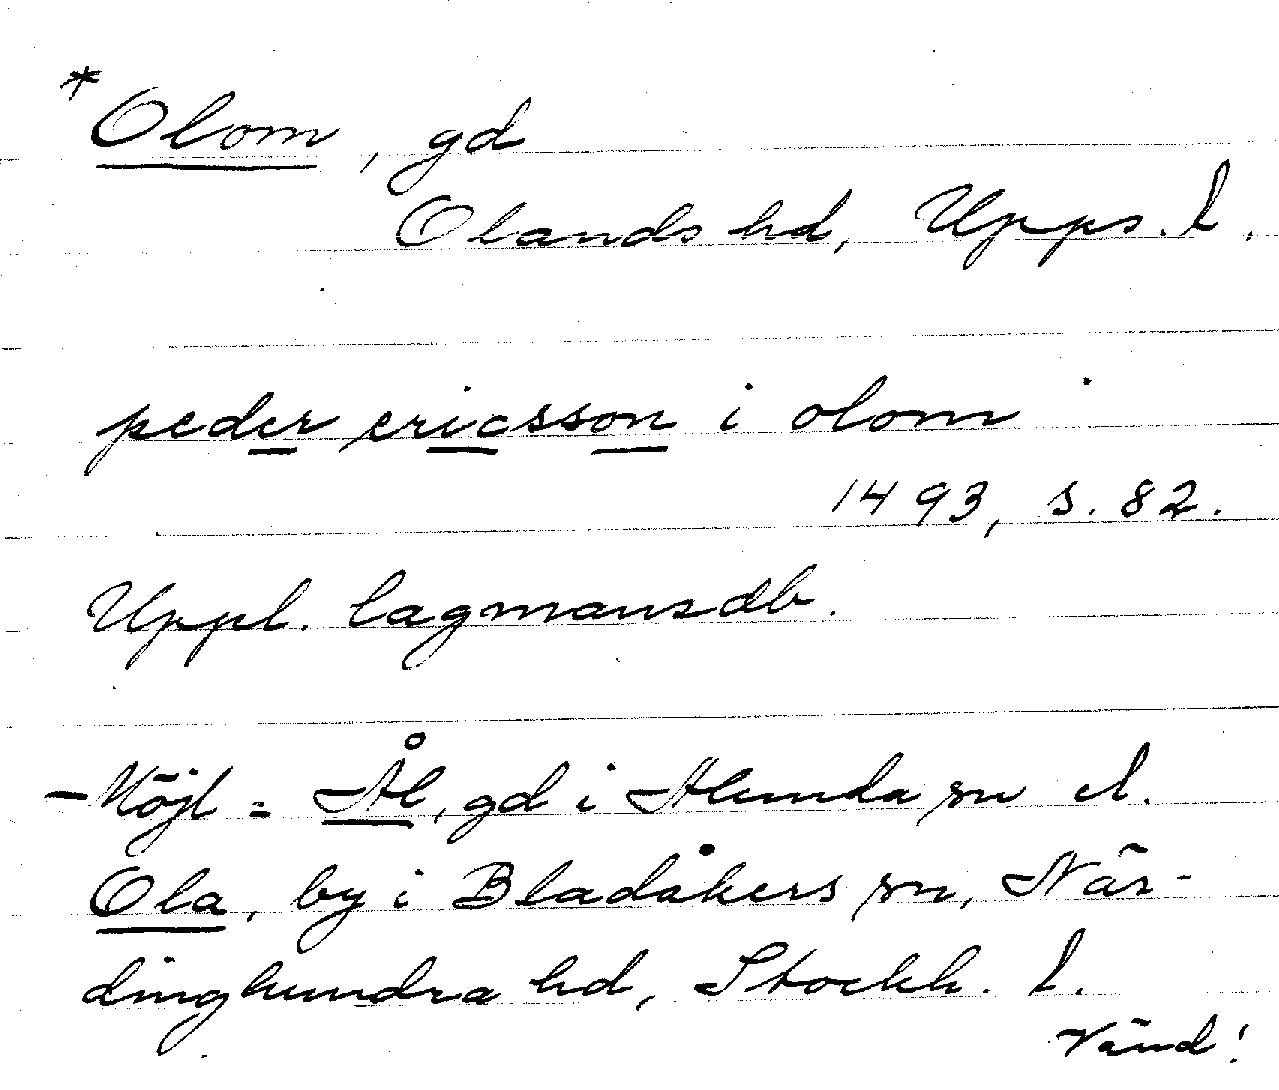 *Olom, gd
Olands hd, Upps. l.
peder ericsson i olom
1493, s. 82.
Uppl. lagmansdb.
-Möjl = Ål, gd i Alunda sn el.
Ola, by i Bladåkers sn, När-
dinghundra hd, Stockh. l.
Vänd!